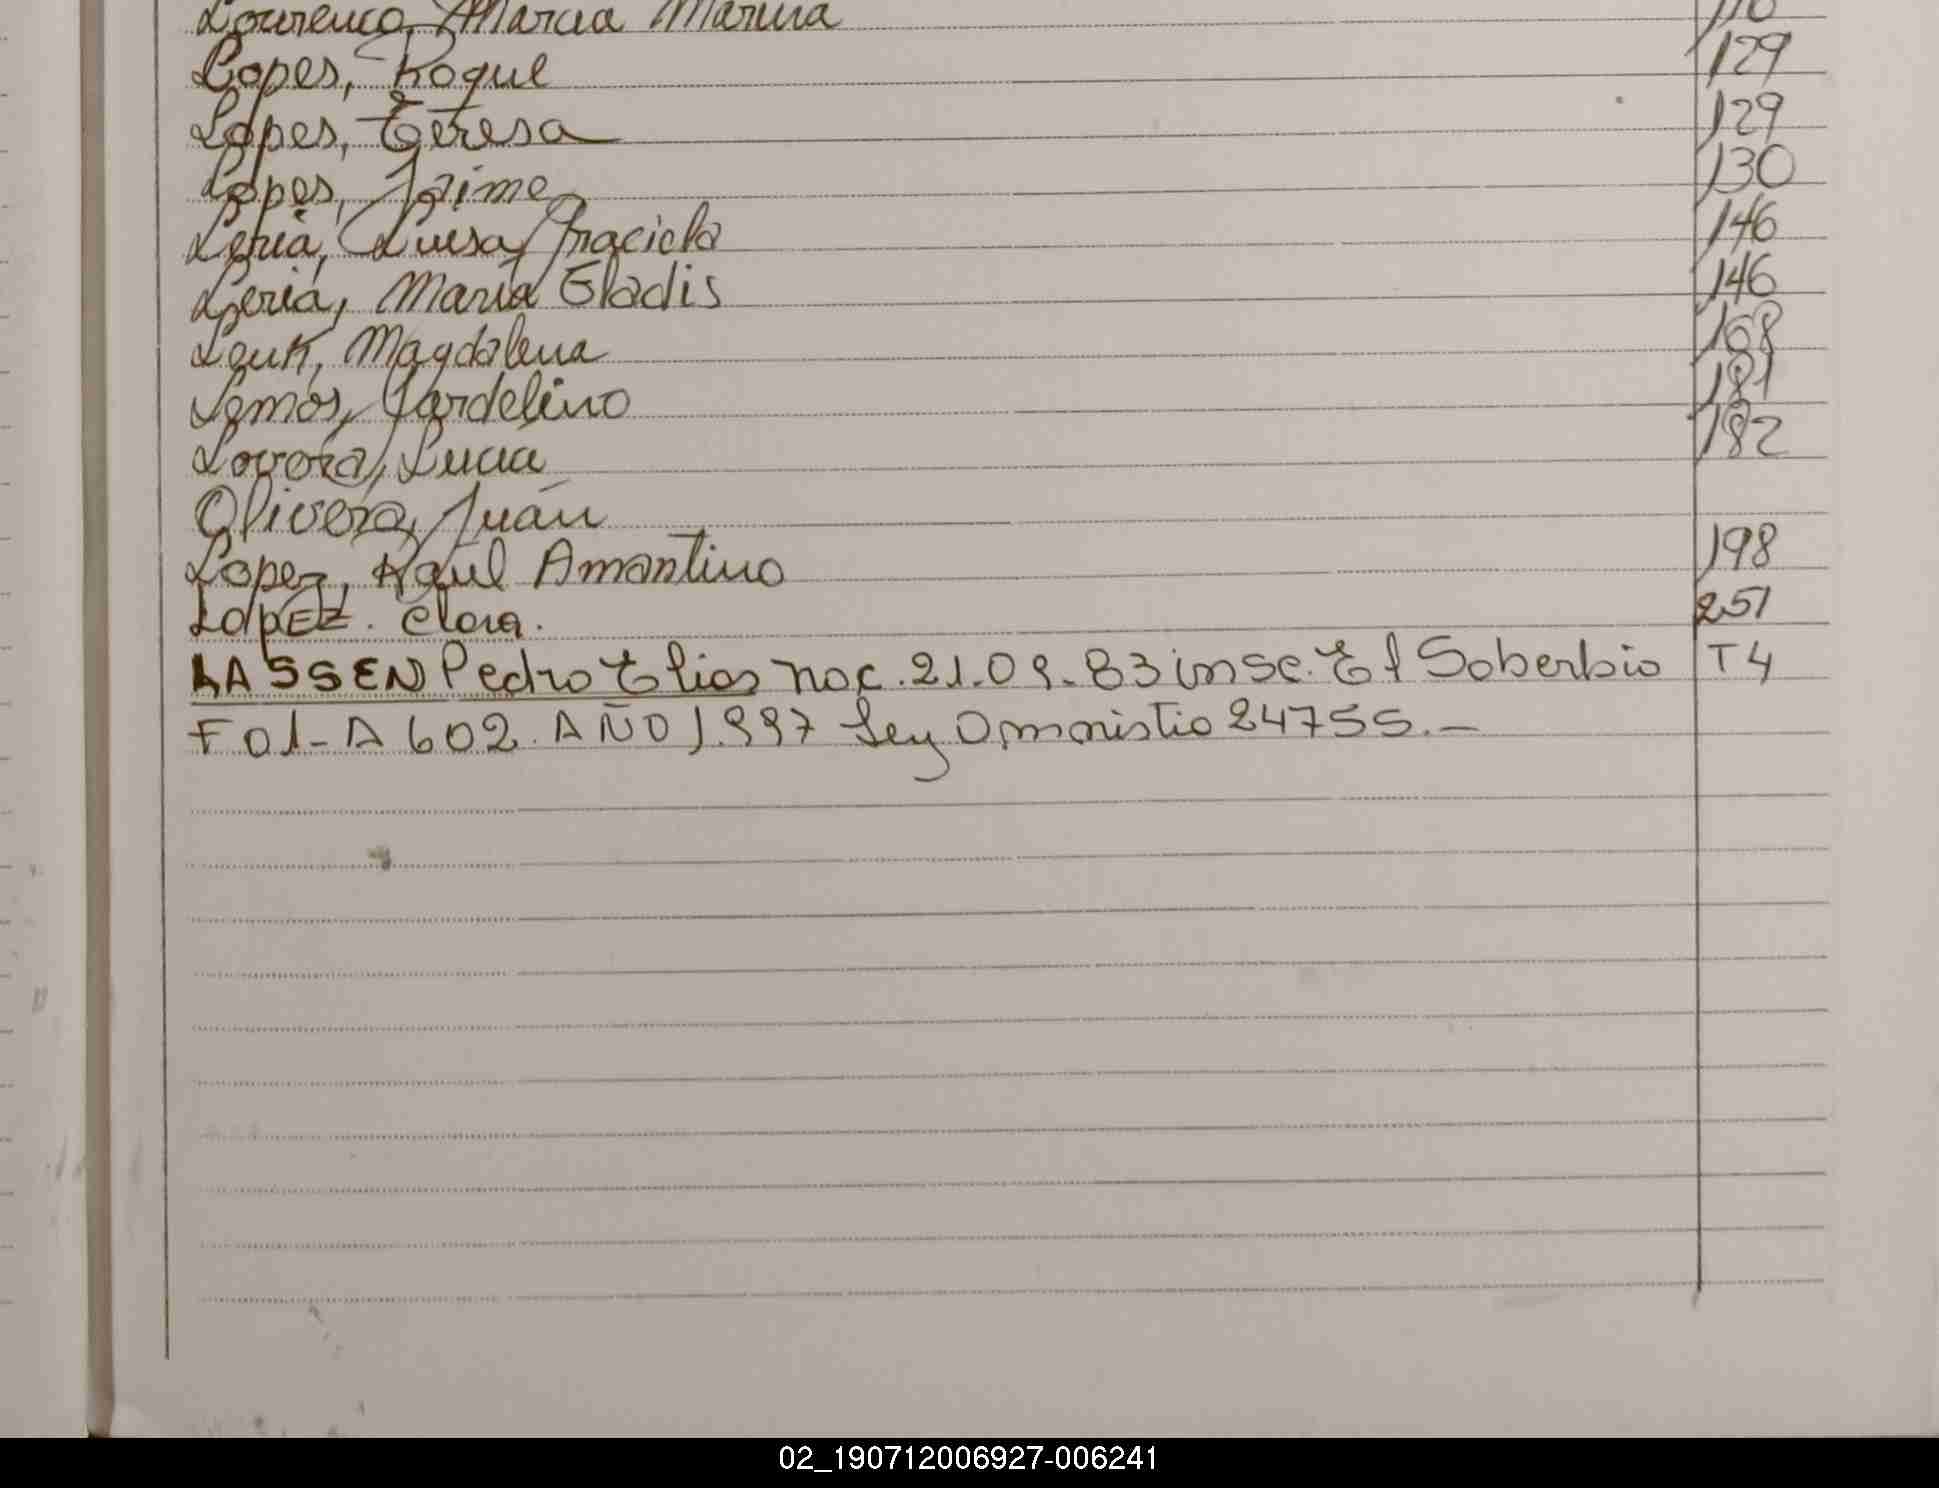 Lourenco, Marcia Marina 110
Lopes, Roque 129
Lopes, Teresa 129
Lopes, Jaime 130
Leria, Luisa Graciela 146
Leria, María Gladis 146
Leuk, Magdalena 168
Lemos, Jardelino 181
Lovera, Lucia 182
Olivera, Juán
Lopez, Raul Amantino 198
LopEZ. Clara. 251
LASSEN Pedro Elias nac. 21.09.83 insc. El Soberbio T4
Fol-A 602. AÑO 1.997 Ley Amnistia 24755.—
02_190712006927-006241